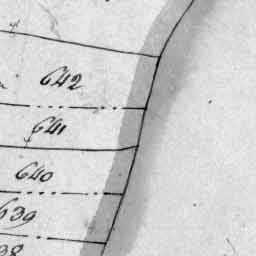 642
641
640
639
38